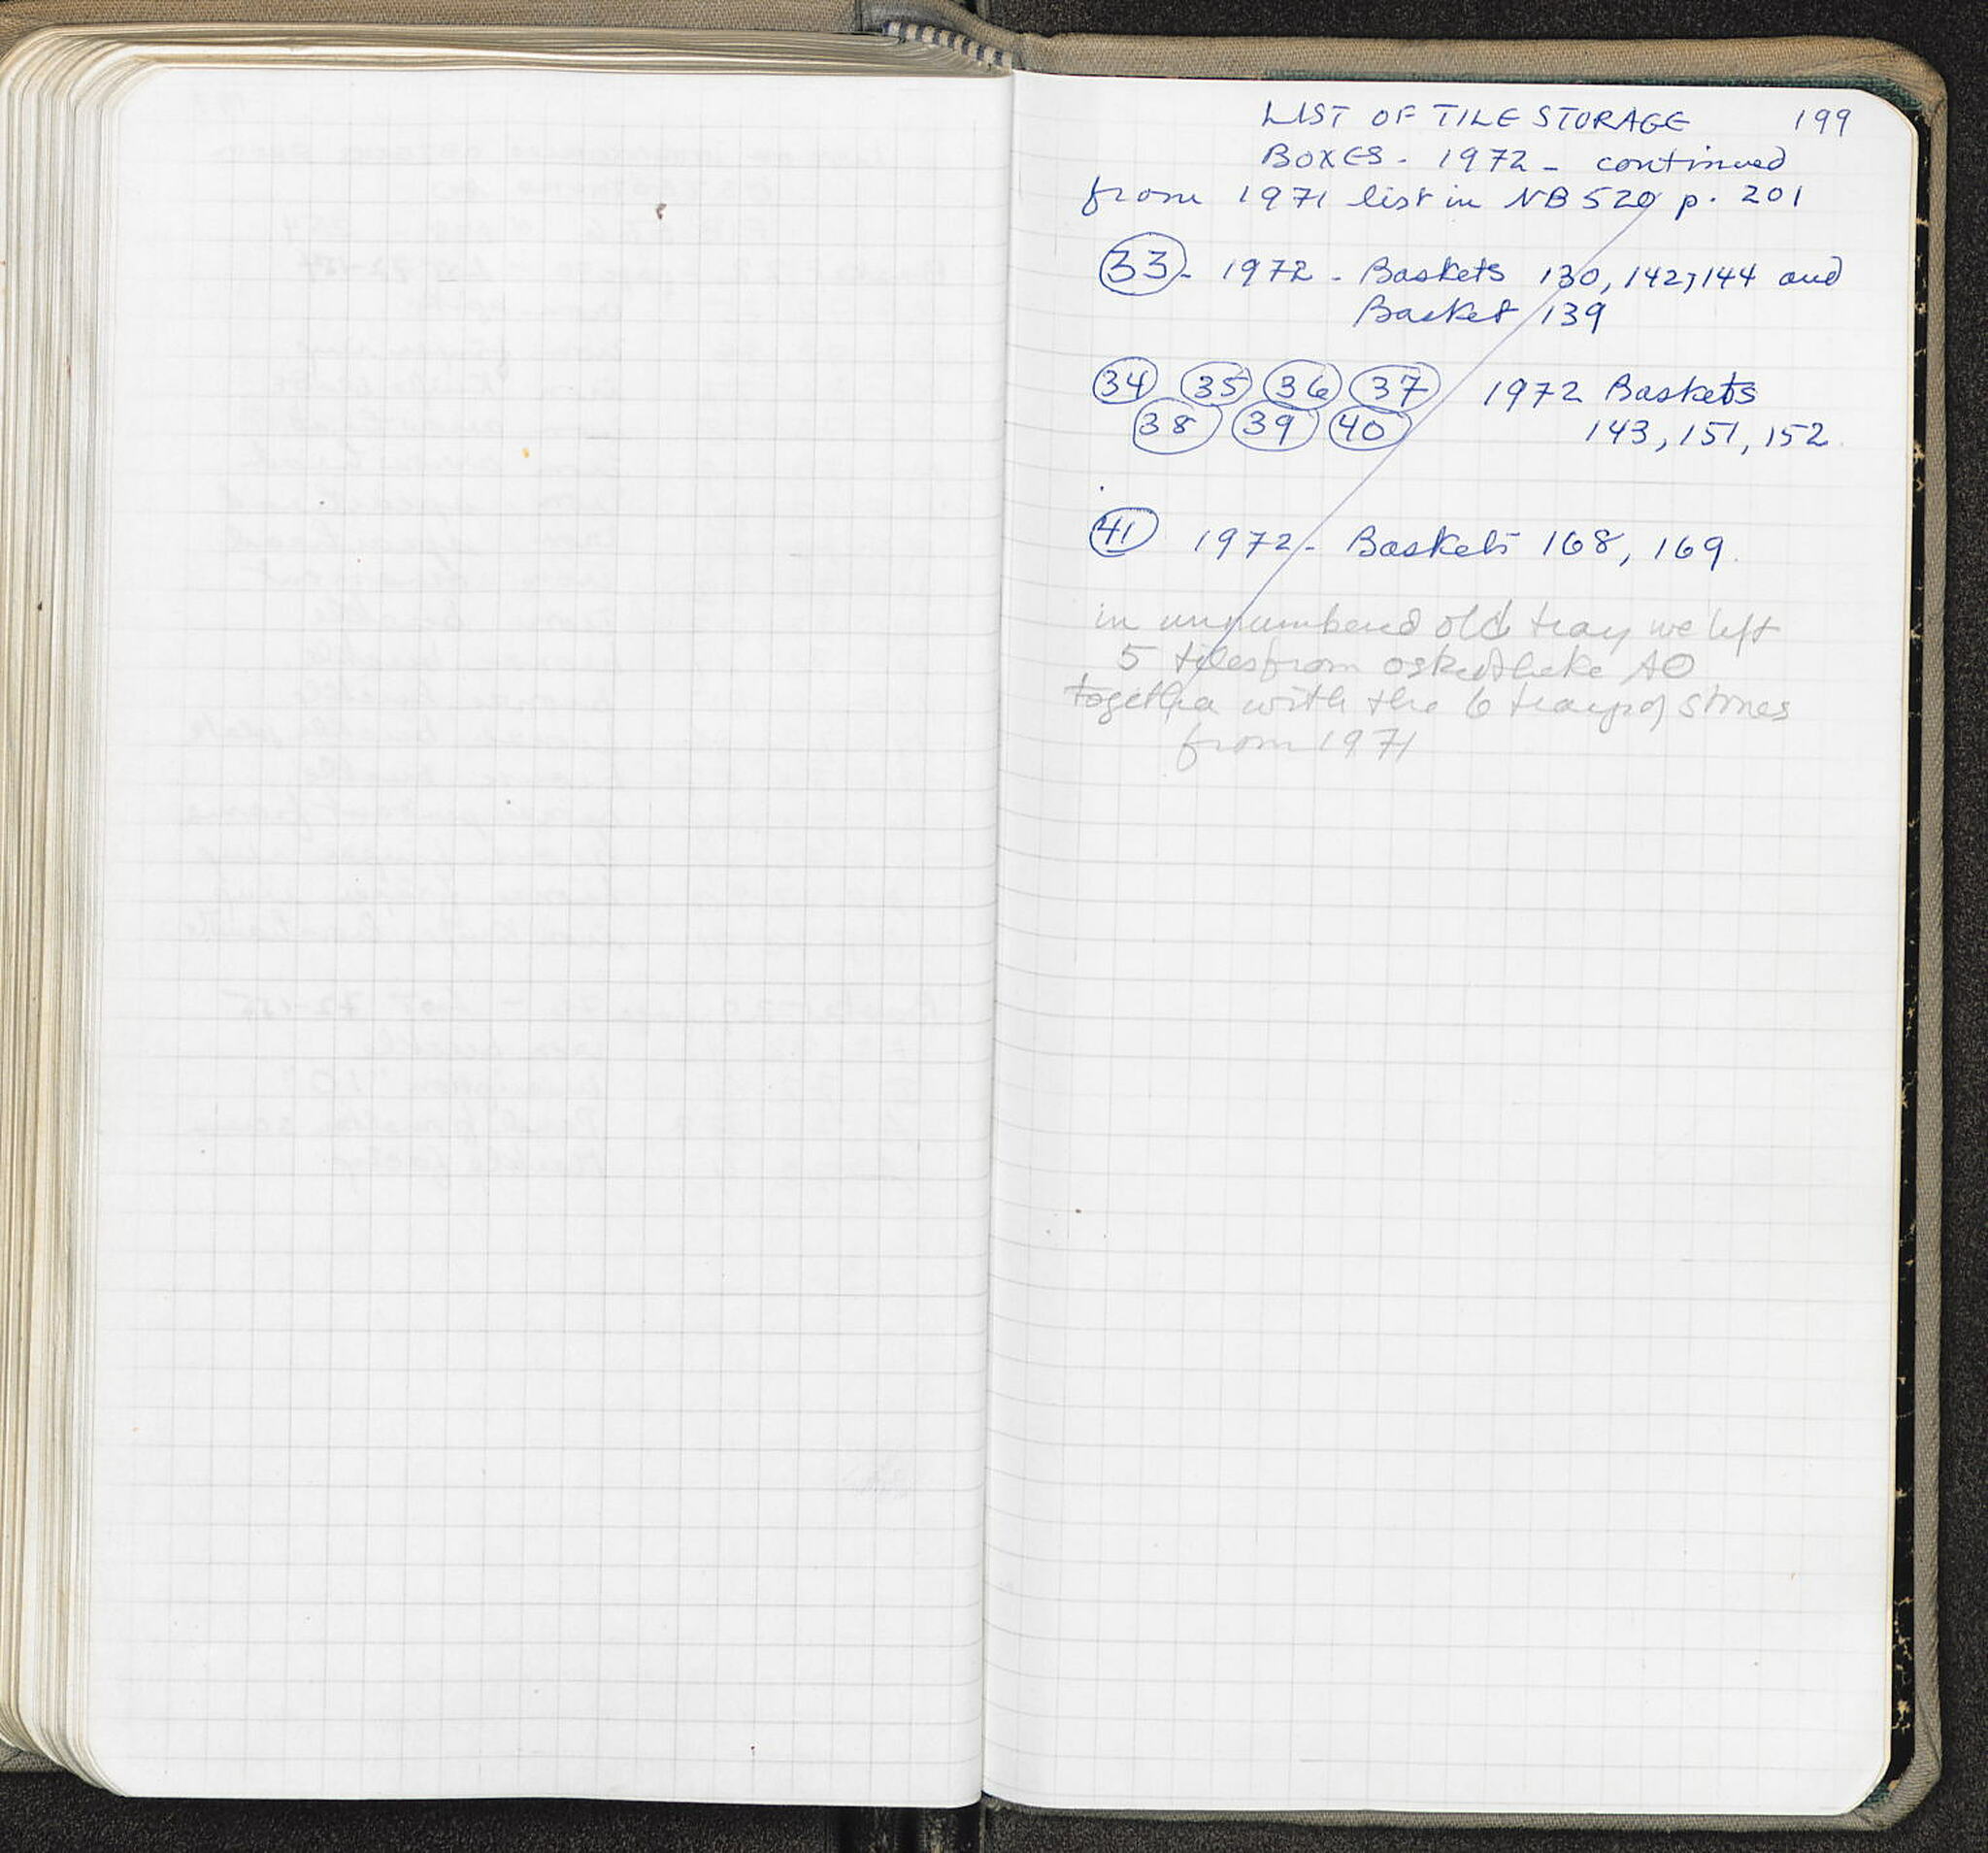 LIST OF TILE STORAGE 199
BOXES - 1972 - continued
from 1971 list in NB 520 p. 201
33 - 1972 - Baskets 130, 142, 144 and
Basket 139
34 35 36 37 1972 Baskets
38 39 40 143, 151, 152
41 1972 - Baskets 168, 169.
in unnumbered old tray we left
5 tiles from
together with the 6 trays of stones
from 1971